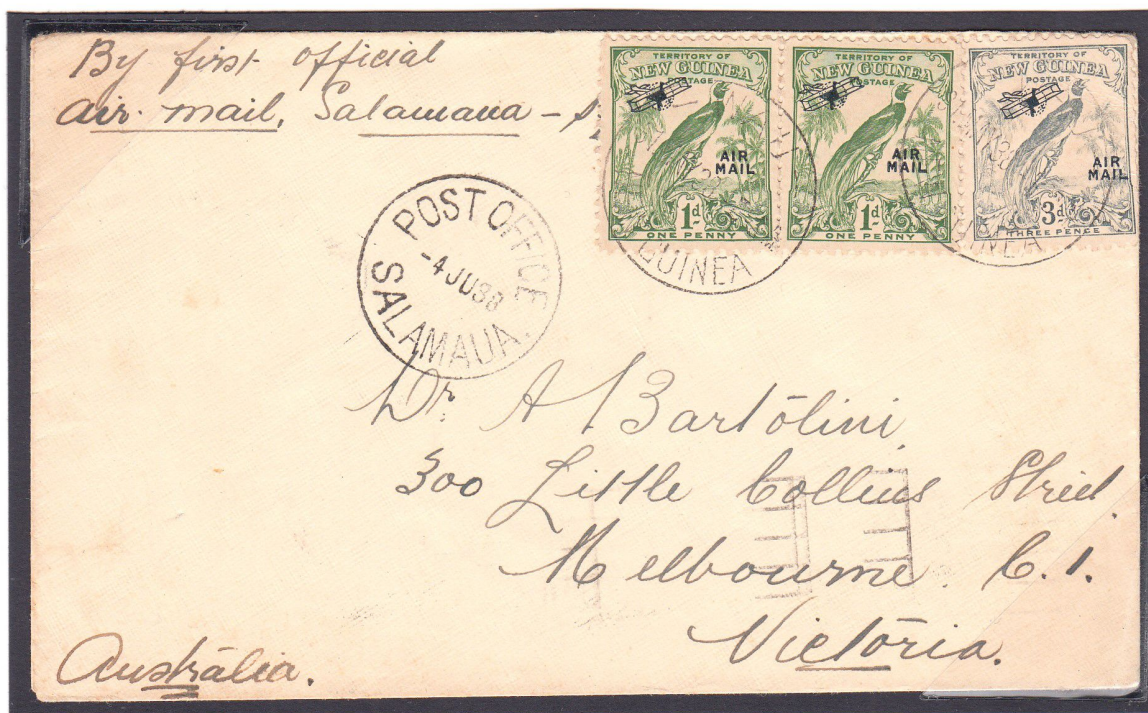 By first official
air mail, Salamaua -
TERRITORY OF
NEW GUINEA
POSTAGE
AIR
MAIL
1d
ONE PENNY
TERRITORY OF
NEW GUINEA
POSTAGE
AIR
MAIL
1d
ONE PENNY
TERRITORY OF
NEW GUINEA
POSTAGE
AIR
MAIL
3d
THREE PENCE
GUINEA
POST OFFICE
-4 JU 38
SALAMAUA.
Dr A Bartōlini
300 Little Collins Street
Melbourne. C.1.
Victōria.
Austrālia.